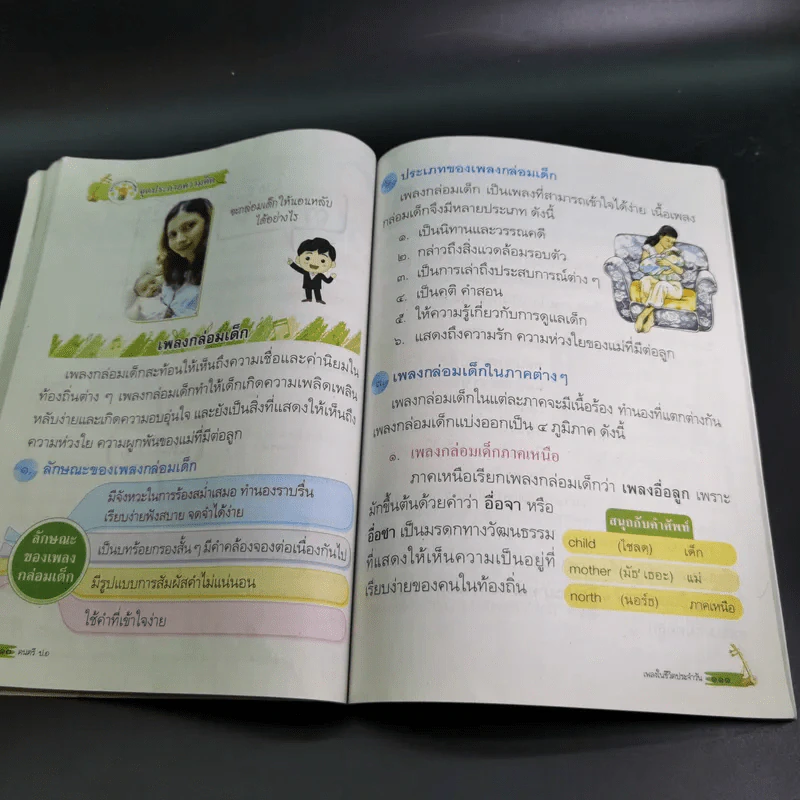 จุดประกายความคิด
จะกล่อมเด็กให้นอนหลับ
ได้อย่างไร
เพลงกล่อมเด็ก
เพลงกล่อมเด็กสะท้อนให้เห็นถึงความเชื่อและค่านิยมใน
ท้องถิ่นต่าง ๆ เพลงกล่อมเด็กทำให้เด็กเกิดความเพลิดเพลิน
หลับง่ายและเกิดความอบอุ่นใจ และยังเป็นสิ่งที่แสดงให้เห็นถึง
ความห่วงใย ความผูกพันของแม่ที่มีต่อลูก
๑. ลักษณะของเพลงกล่อมเด็ก
ลักษณะ
ของเพลง
กล่อมเด็ก
มีจังหวะในการร้องสม่ำเสมอ ทำนองราบรื่น
เรียบง่ายฟังสบาย จดจำได้ง่าย
เป็นบทร้อยกรองสั้น ๆ มีคำคล้องจองต่อเนื่องกันไป
มีรูปแบบการสัมผัสคำไม่แน่นอน
ใช้คำที่เข้าใจง่าย
ดนตรี ป.๓
ประเภทของเพลงกล่อมเด็ก
เพลงกล่อมเด็ก เป็นเพลงที่สามารถเข้าใจได้ง่าย เนื้อเพลง
กล่อมเด็กจึงมีหลายประเภท ดังนี้
๑. เป็นนิทานและวรรณคดี
๒. กล่าวถึงสิ่งแวดล้อมรอบตัว
๓. เป็นการเล่าถึงประสบการณ์ต่าง ๆ
๔. เป็นคติ คำสอน
๕. ให้ความรู้เกี่ยวกับการดูแลเด็ก
๖. แสดงถึงความรัก ความห่วงใยของแม่ที่มีต่อลูก
เพลงกล่อมเด็กในภาคต่าง ๆ
เพลงกล่อมเด็กในแต่ละภาคจะมีเนื้อร้อง ทำนองที่แตกต่างกัน
เพลงกล่อมเด็กแบ่งออกเป็น ๔ ภูมิภาค ดังนี้
๑. เพลงกล่อมเด็กภาคเหนือ
ภาคเหนือเรียกเพลงกล่อมเด็กว่า เพลงอื่อลูก เพราะ
มักขึ้นต้นด้วยคำว่า อื่อจา หรือ
อื่อชา เป็นมรดกทางวัฒนธรรม
ที่แสดงให้เห็นความเป็นอยู่ที่
เรียบง่ายของคนในท้องถิ่น
สนุกกับคำศัพท์
child (ไชลด) เด็ก
mother (มัธ' เธอะ) แม่
north (นอร์ธ) ภาคเหนือ
เพลงในชีวิตประจำวัน ๑๑๑